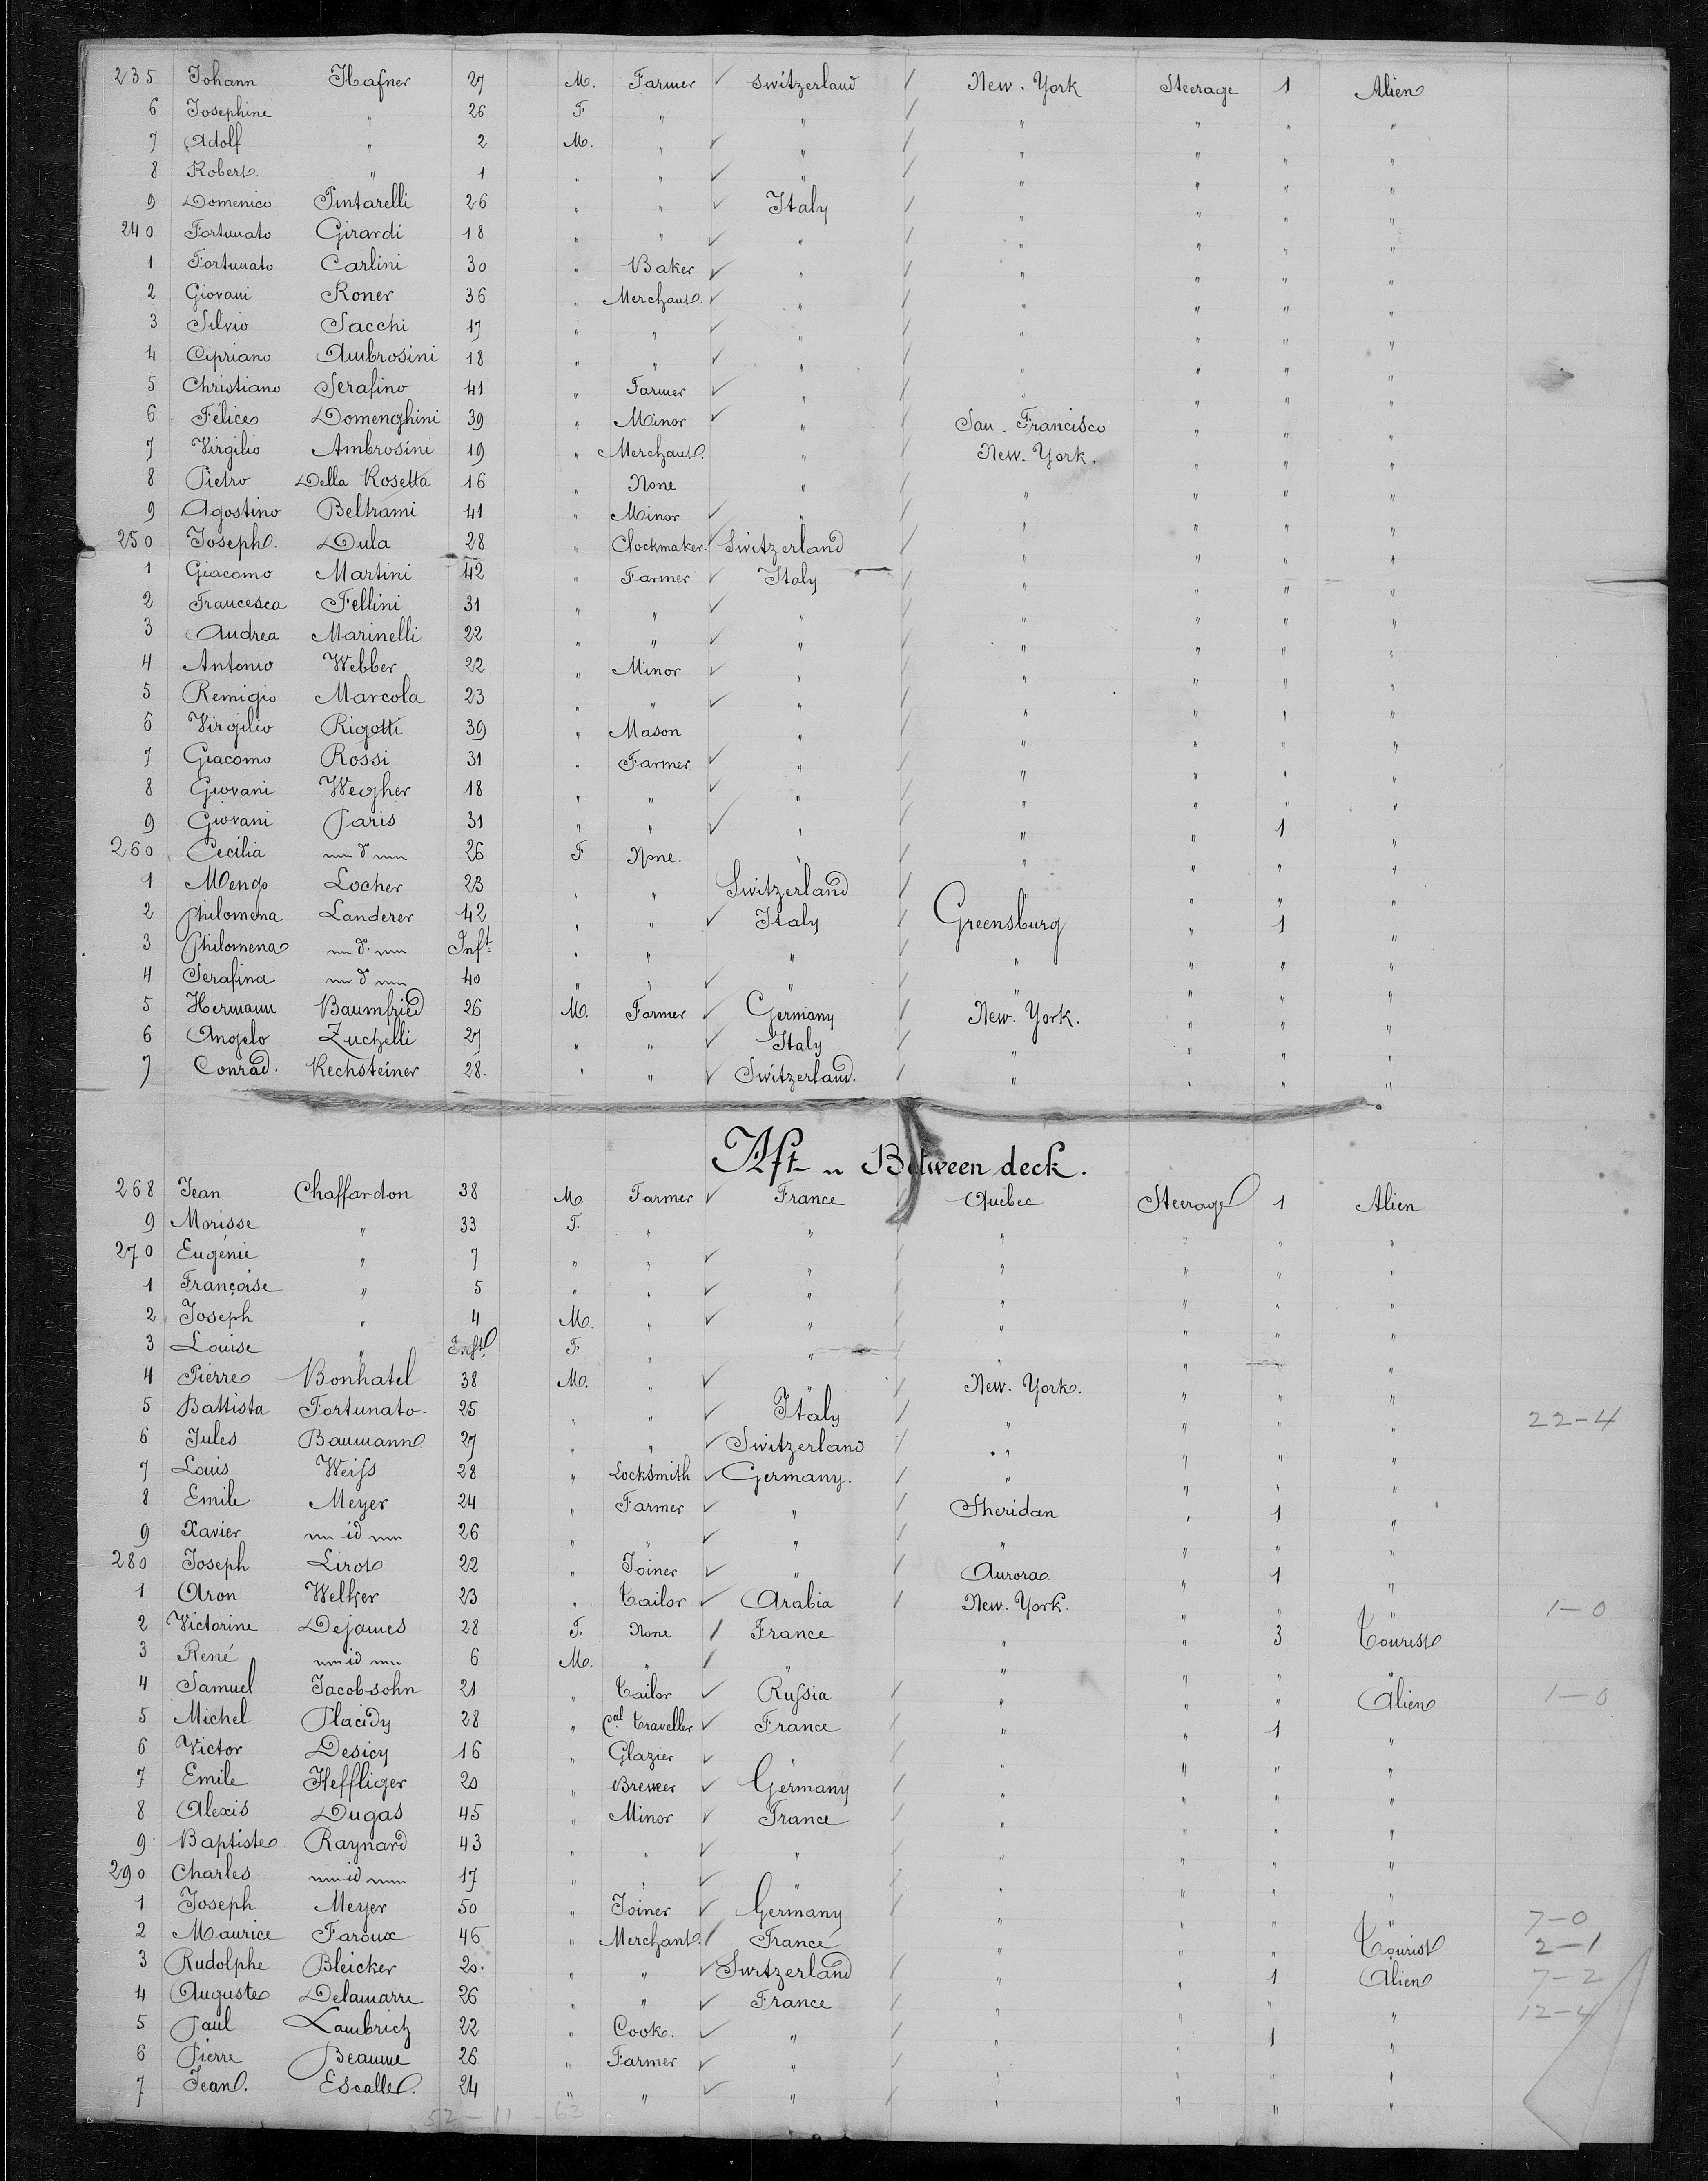 235 Johann Hafner 27 M. Farmer ✓ Switzerland / New. York Steerage 1 Alien
6 Josephine " 26 F " " / " " " "
7 Adolf " 2 M. " ✓ " / " " " "
8 Robert. " 1 " " ✓ " / " " " "
9 Domenico Pintarelli 26 " " ✓ Italy / " " " "
240 Fortunato Girardi 18 " " ✓ " / " " " "
1 Fortunato Carlini 30 " Baker ✓ " / " " " "
2 Giovani Roner 36 " Merchant. ✓ " / " " " "
3 Silvio Sacchi 17 " " ✓ " / " " " "
4 Cipriano Ambrosini 18 " " ✓ " / " " " "
5 Christiano Serafino 41 " Farmer ✓ " / " " " "
6 Félice Domenghini 39 " Minor ✓ " / San. Francisco " " "
7 Virgilio Ambrosini 19 " Merchant. " / New. York. " " "
8 Pietro Della Rosetta 16 " None " / " " " "
9 Agostino Beltrami 41 " Minor ✓ " / " " " "
250 Joseph. Dula 28 " Clockmaker. ✓ Switzerland / " " " "
1 Giacomo Martini 42 " Farmer ✓ Italy / " " " "
2 Francesca Fellini 31 " " ✓ " / " " " "
3 Andrea Marinelli 22 " " ✓ " / " " " "
4 Antonio Webber 22 " Minor ✓ " / " " " "
5 Remigio Marcola 23 " " ✓ " / " " " "
6 Virgilio Rigotti 39 " Mason " / " " " "
7 Giacomo Rossi 31 " Farmer ✓ " / " " " "
8 Giovani Wegher 18 " " ✓ " / " " " "
9 Giovani Paris 31 " " ✓ " / " " 1 "
260 Cecilia d° 26 F None. " / " " " "
1 Mengo Locher 23 " " Switzerland / " " " "
2 Philomena Landerer 42 " " ✓ Italy / Greensburg " 1 "
3 Philomena d° Inft " " " / " " " "
4 Serafina d° 40 " " ✓ " / " " " "
5 Hermann Baumfried 26 M. Farmer ✓ Germany / New. York. " " "
6 Angelo Zuchelli 27 " " ✓ Italy / " " " "
7 Conrad. Kechsteiner 28. " " ✓ Switzerland. / " " " "
Aft " Between deck.
268 Jean Chaffardon 38 M. Farmer ✓ France / Quebec Steerage 1 Alien
9 Morisse " 33 F. " " " " " "
270 Eugénie " 7 " " ✓ " / " " " "
1 Françoise " 5 " " ✓ " / " " " "
2 Joseph " 4 M. " ✓ " / " " " "
3 Louise " Inft. F " " / " " " "
4 Pierre Bonhatel 38 M. " ✓ " / New. York. " " "
5 Battista Fortunato 25 " " ✓ Italy / " " " " 22-4
6 Jules Baumann. 27 " " ✓ Switzerland / " " " "
7 Louis Weiss 28 " Locksmith ✓ Germany. / " " " "
8 Emile Meyer 24 " Farmer ✓ " / Sheridan " 1 "
9 Xavier id 26 " " ✓ " / " " " "
280 Joseph Lirot 22 " Joiner ✓ " / Aurora. " 1 "
1 Aron Welker 23 " Tailor ✓ Arabia / New. York. " " " 1-0
2 Victorine Dejames 28 F. None / France " " 3 Tourist
3 René id 6 M. " / " " " " "
4 Samuel Jacobsohn 21 " Tailor ✓ Russia / " " " Alien 1-0
5 Michel Placidy 28 " Cal Traveller ✓ France / " " 1 "
6 Victor Desicy 16 " Glazier ✓ " / " " " "
7 Emile Heffliger 20 " Brewer ✓ Germany / " " " "
8 Alexis Dugas 45 " Minor ✓ France / " " " "
9 Baptiste. Raynard 43 " " ✓ " / " " " "
290 Charles id 17 " " ✓ " / " " " "
1 Joseph Meyer 50 " Joiner ✓ Germany / " " " " 7-0
2 Maurice Faroux 46 " Merchant. / France " " " Tourist 2-1
3 Rudolphe Bleicker 20. " " ✓ Switzerland / " " 1 Alien 7-2
4 Auguste Delamarre 26 " " ✓ France / " " " " 12-4
5 Paul Lambrich 22 " Cook. ✓ " / " " 1 "
6 Pierre Beaume 26 " Farmer ✓ " / " " " "
7 Jean. Escalle. 24 " " ✓ " / " " " "
52-11-63